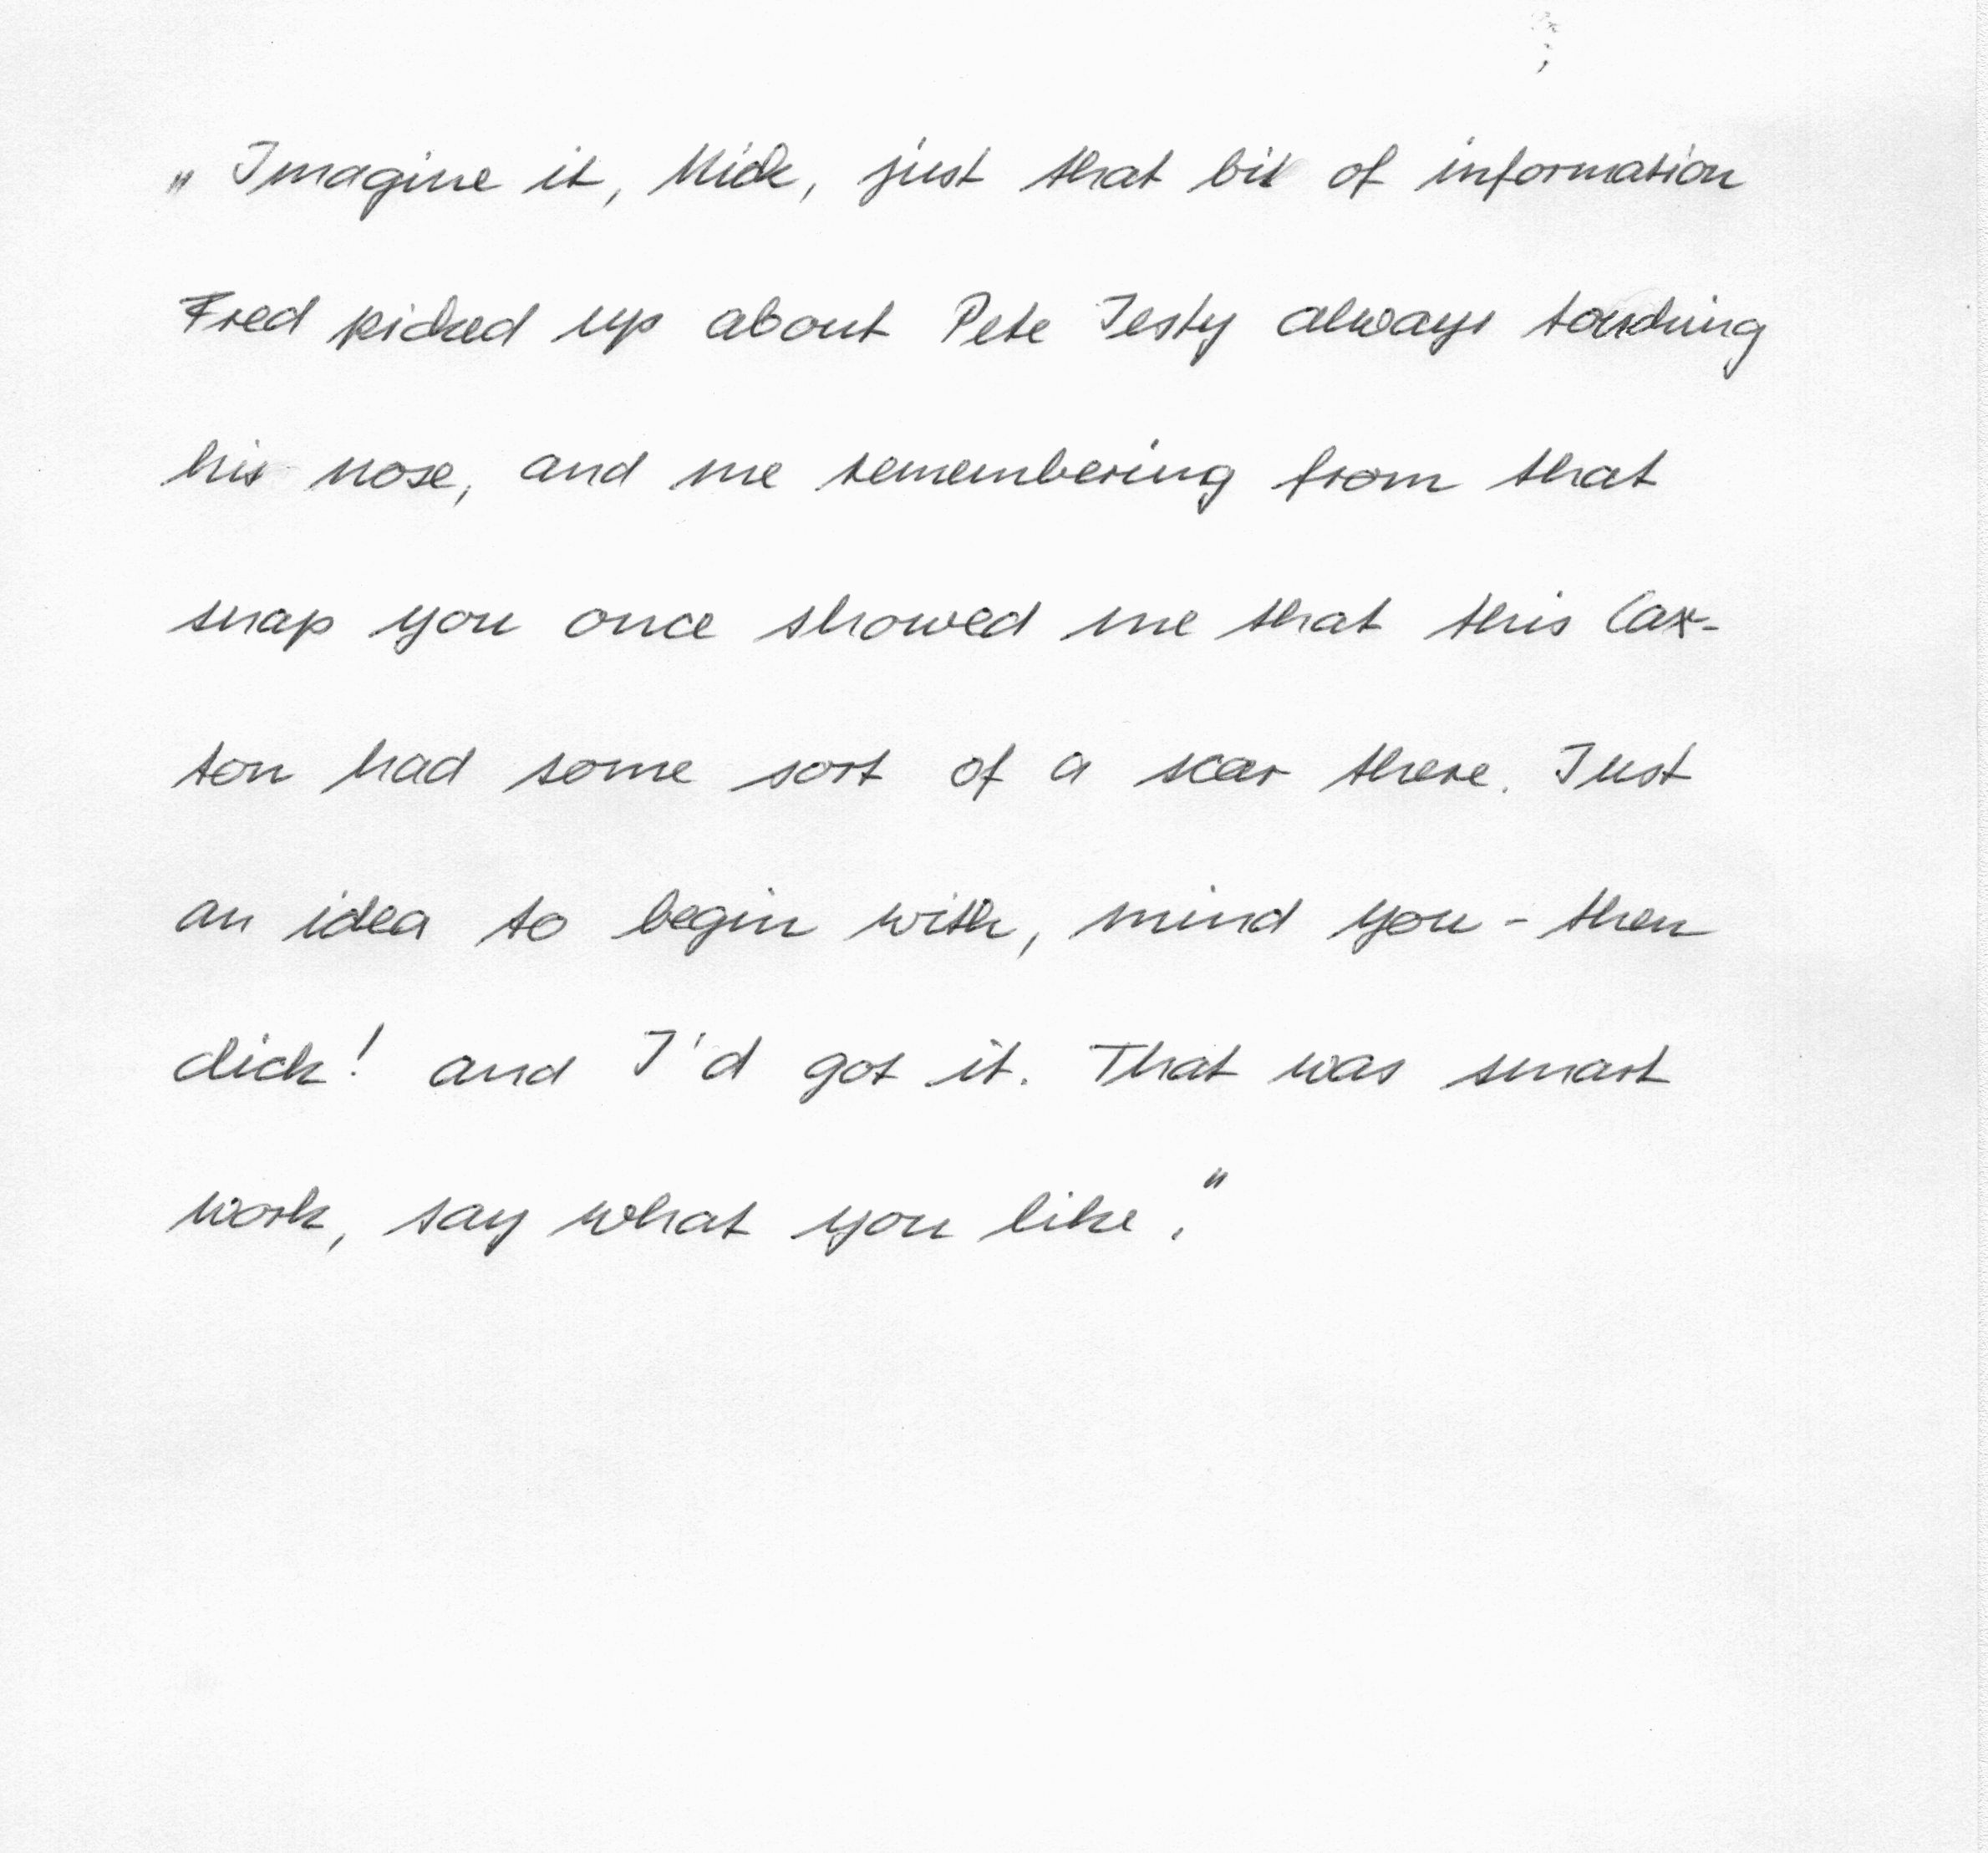 „Imagine it, Nick, just that bit of information
Fred picked up about Pete Testy always touching
his nose, and me remembering from that
snap you once showed me that this Cax-
ton had some sort of a scar there. Just
an idea to begin with, mind you - then
click! and I'd got it. That was smart
work, say what you like."